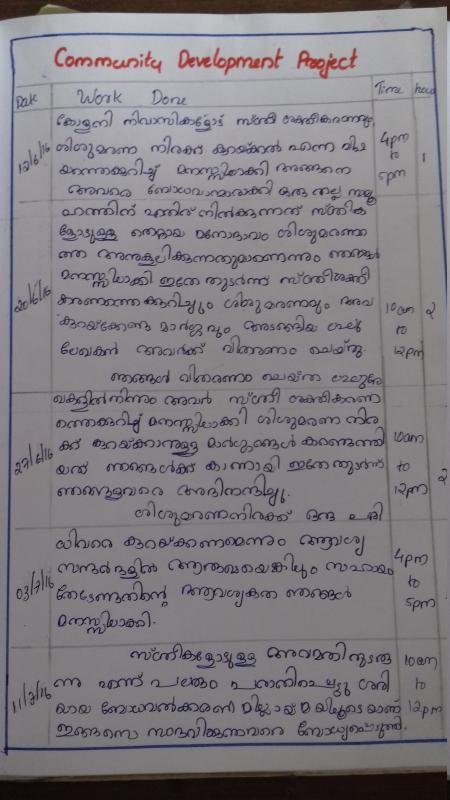 Community Development Project
Date Work Done Time hour
കോളനി നിവാസികളോട് സ്ത്രീ ശക്തീകരണവും,
12/6/16 ശിശുമരണ നിരക്ക് കുറയ്ക്കൽ എന്ന വിഷ 4pm to 5pm 1
യത്തെക്കുറിച്ച് മനസ്സിലാക്കി അങ്ങനെ
അവരെ ബോധവാന്മാരാക്കി ഒരു നല്ല സമൂ
ഹത്തിന് എതിര് നിൽക്കുന്നത് സ്ത്രീക
ളോടുള്ള തെറ്റായ മനോഭാവം ശിശുമരണ
ത്തെ അനുകൂലിക്കുന്നതുമാണെന്നും ഞങ്ങൾ
20/6/16 മനസ്സിലാക്കി ഇതേ തുടർന്ന് സ്ത്രീശക്തീ
കരണത്തെക്കുറിച്ചും ശിശുമരണവും അവ 10am 2
കുറയ്ക്കേണ്ട മാർഗ്ഗവും അടങ്ങിയ ലഘു to
ലേഖകൾ അവർക്ക് വിതരണം ചെയ്തു. 12pm
ഞങ്ങൾ വിതരണം ചെയ്ത ലഘുലേ
ഖകളിൽനിന്നും അവർ സ്ത്രീ ശക്തീകരണ
ത്തെക്കുറിച്ച് മനസ്സിലാക്കി ശിശുമരണ നിര
27/6/16 ക്ക് കുറയ്ക്കാനുള്ള മാർഗ്ഗങ്ങൾ കണ്ടെത്തി 10am
യത് ഞങ്ങൾക്ക് കാണായി ഇതേ തുടർന്ന് to
ഞങ്ങളവരെ അഭിനന്ദിച്ചു. 12pm 2
ശിശുമരണനിരക്ക് ഒരു പരി
ധിവരെ കുറയ്ക്കണമെന്നും ആവശ്യ
സന്ദർഭങ്ങളിൽ സഹായം 4pm
03/7/16 തേടേണ്ടതിന്റെ ആവശ്യകത ഞങ്ങൾ to 5pm
മനസ്സിലാക്കി.
സ്ത്രീകളോടുള്ള അവമതി തുടരു 10am
11/7/16 ന്നു എന്ന് പലരും പരാതിപ്പെട്ടു ശരി to
യായ ബോധവൽക്കരണമില്ലായ്മയിലൂടെയാണ് 12pm
ഇങ്ങനെ സംഭവിക്കുന്നതെന്ന് ബോധ്യപ്പെടുത്തി.